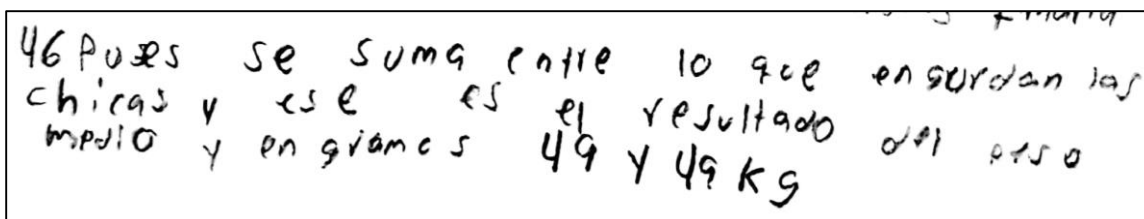 46 Pues se suma entre lo que engordan las
chicas y ese es el resultado del peso
medio y en gramos 49 y 49 kg